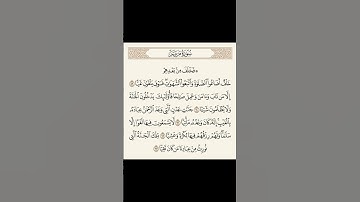 سُورَةُ مَرْيَمَ
۞ فَخَلَفَ مِنۢ بَعْدِهِمْ
خَلْفٌ أَضَاعُوا۟ ٱلصَّلَوٰةَ وَٱتَّبَعُوا۟ ٱلشَّهَوَٰتِ فَسَوْفَ يَلْقَوْنَ غَيًّا ٥٩
إِلَّا مَن تَابَ وَءَامَنَ وَعَمِلَ صَٰلِحًا فَأُو۟لَٰٓئِكَ يَدْخُلُونَ ٱلْجَنَّةَ
وَلَا يُظْلَمُونَ شَيْـًٔا ٦٠ جَنَّٰتِ عَدْنٍ ٱلَّتِى وَعَدَ ٱلرَّحْمَٰنُ عِبَادَهُۥ
بِٱلْغَيْبِ إِنَّهُۥ كَانَ وَعْدُهُۥ مَأْتِيًّا ٦١ لَّا يَسْمَعُونَ فِيهَا لَغْوًا إِلَّا
سَلَٰمًا وَلَهُمْ رِزْقُهُمْ فِيهَا بُكْرَةً وَعَشِيًّا ٦٢ تِلْكَ ٱلْجَنَّةُ ٱلَّتِى
نُورِثُ مِنْ عِبَادِنَا مَن كَانَ تَقِيًّا ٦٣